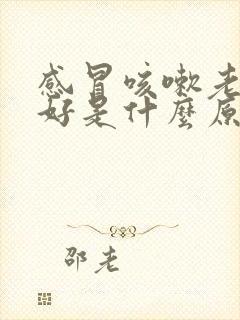 感冒咳嗽老
好是什麼原
邵老